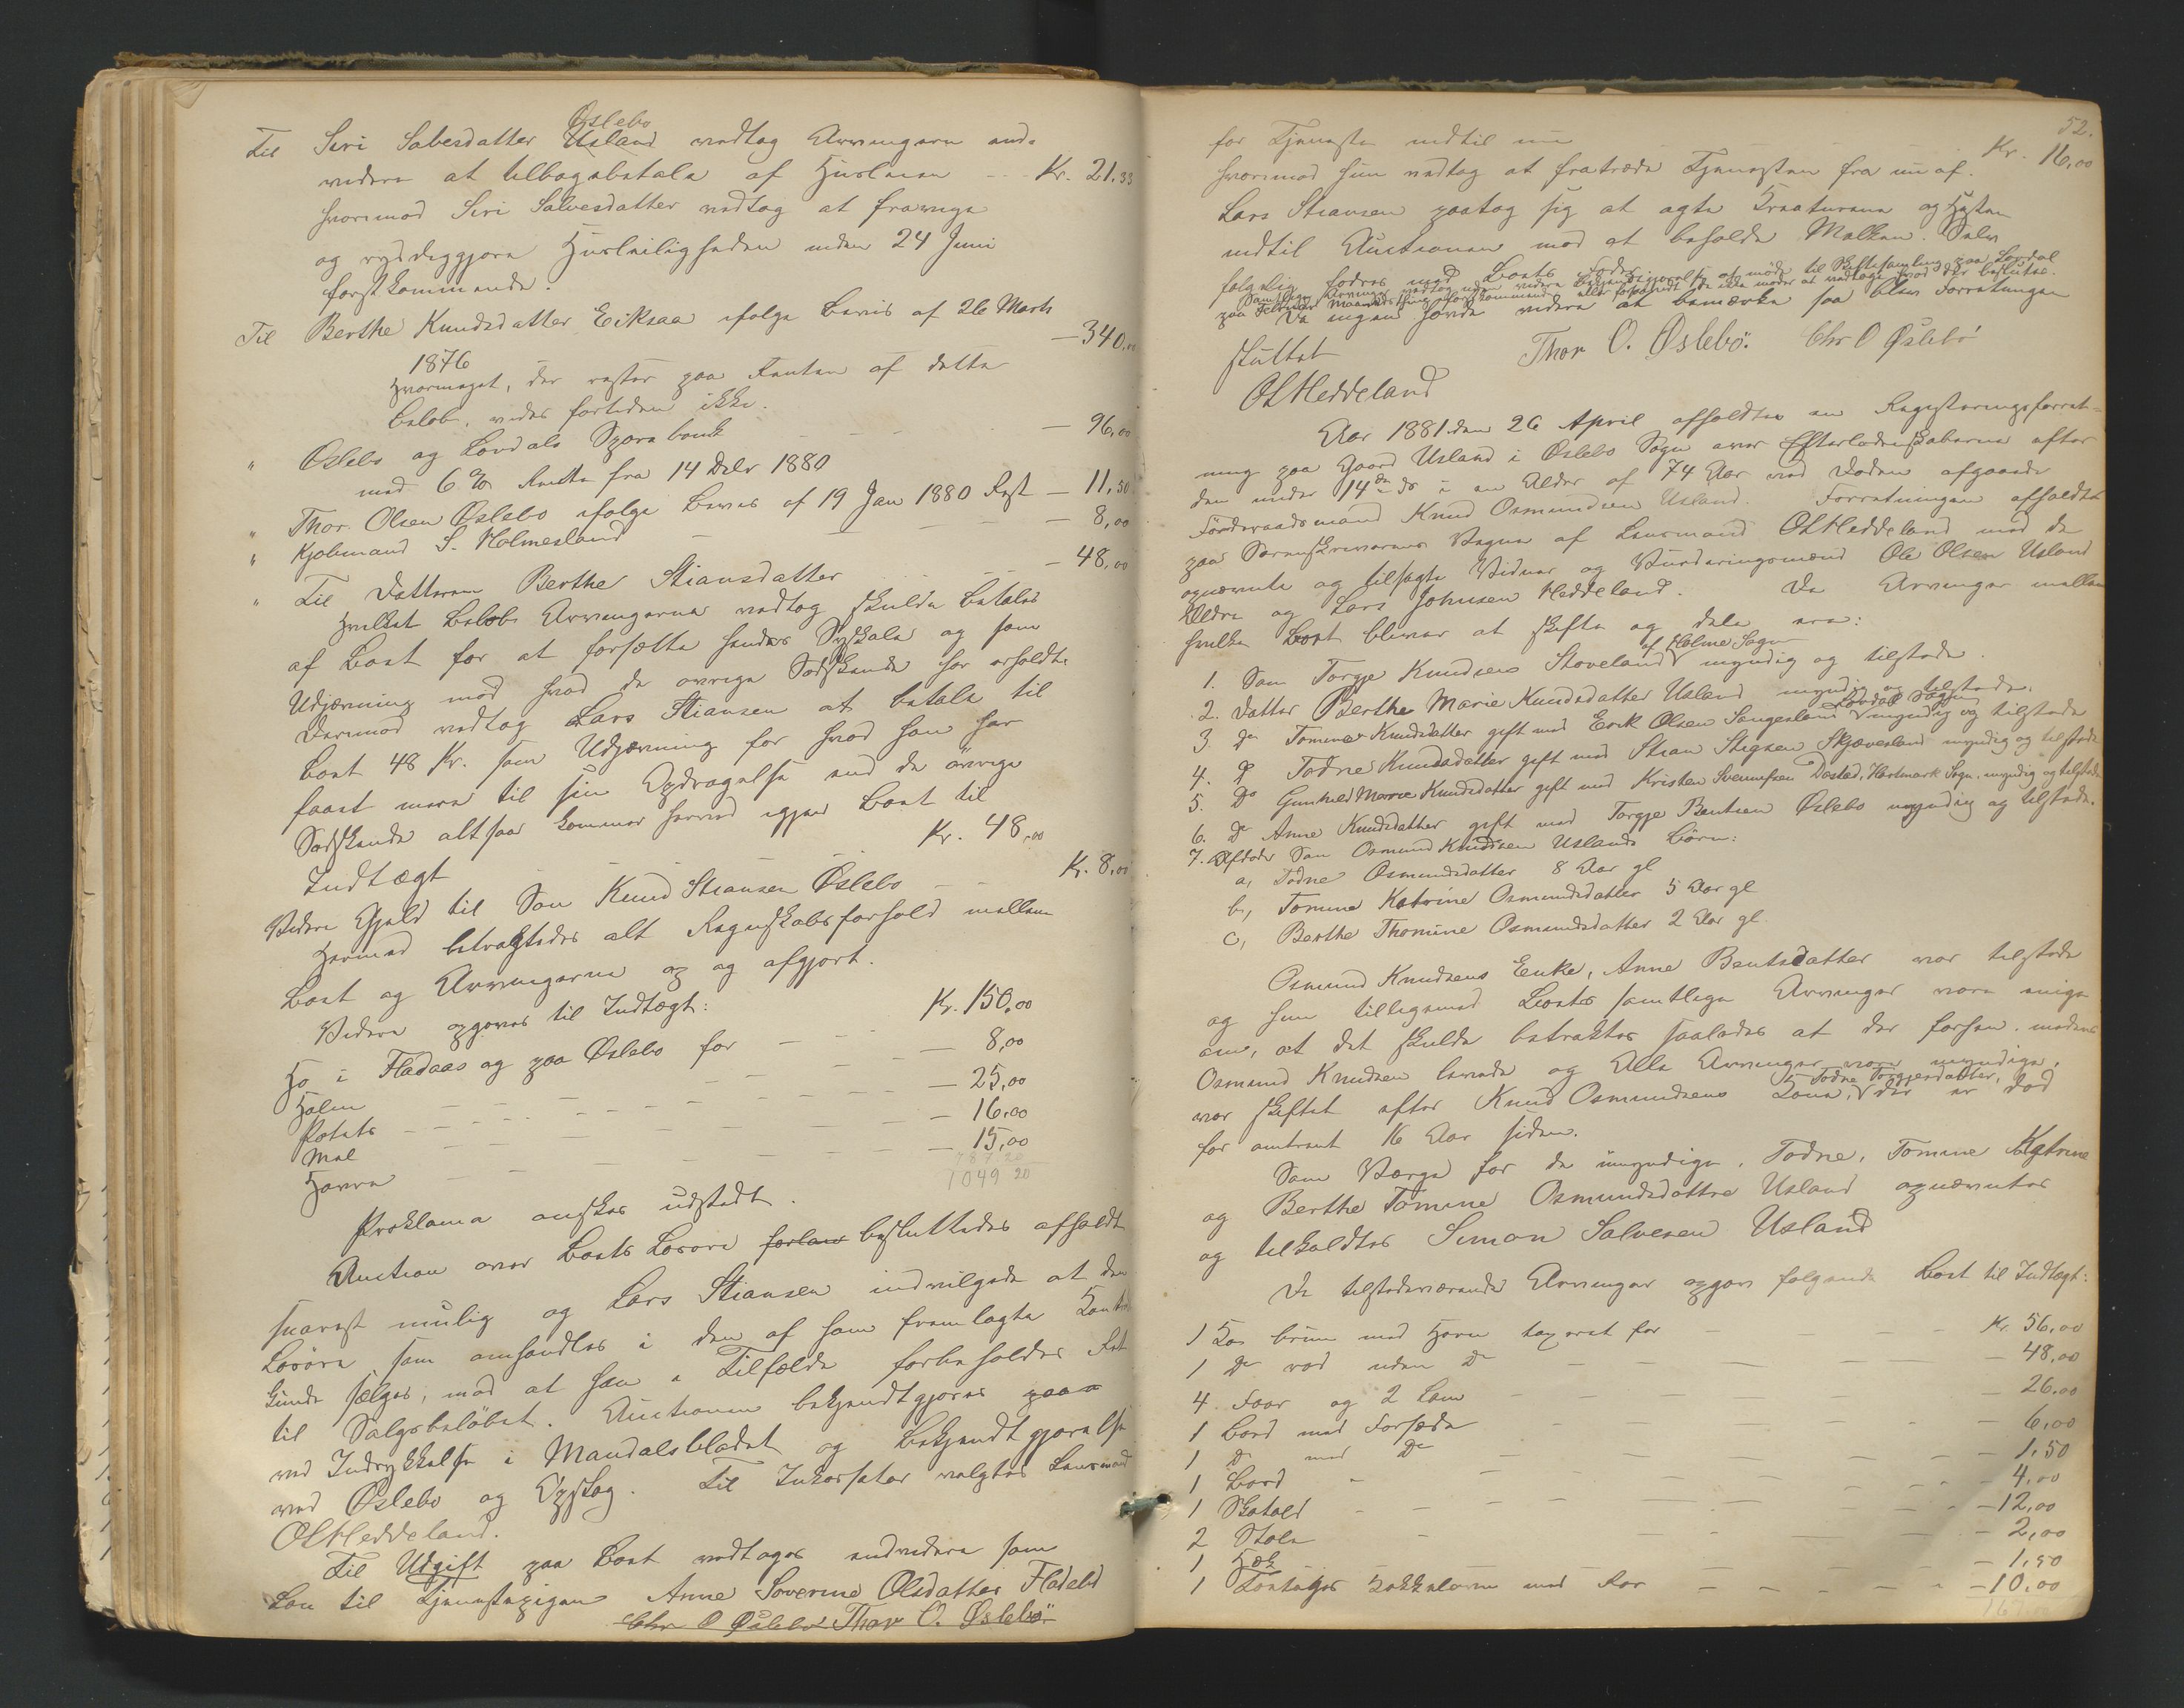 Øslebø
Til Siri Salvesdatter Usland vedtog Arvingerne end-
videre at tilbagebetale af Huusleien - - - Kr. 21.33
hvorimod Siri Salvesdatter vedtog at fravige
og ryddeggjøre Huusleiligheden inden 24 Juni
førstkommende.
Til Berthe Knudsdatter Eiksaa ifølge Bevis af 26 Marts
1876 — 340,00
Hvormeget, der rester paa Renten af dette
Beløb, vides fortiden ikke.
" Øslebø og Løvdals Sparebank - - - — 96,00
med 6 % Rente fra 14 Decbr 1880
" Thor Olsen Øslebø ifølge Bevis af 19 Jan 1880 Rest — 11,50
" Kjøbmand S. Holmesland - — - — 8,00
" Til Datteren Berthe Stiansdatter - - - — 48,00
hvilket Beløb Arvingerne vedtog skulde betales
af Boet for at forsætte hendes Syskole og som
Udjævning mod hvad de øvrige Sødskende har erholdt.
Derimod vedtog Lars Stiansen at betale til
Boet 48 Kr. som Udjævning for hvad han har
faaet mere til sin Opdragelse end de øvrige
Sødskende altsaa kommer herved igjen Boet til
Indtægt - - - Kr. 48,00
Videre Gjæld til Søn Knud Stiansen Øslebø - - Kr. 8,00
Hermed betragtedes alt Regnskabsforhold mellem
Boet og Arvingerne op og afgjort.
Videre opgives til Indtægt:
Hø i Fladaas og paa Øslebø for - - - Kr. 150,00
Halm - - - — 8,00
Potets - - - — 25,00
Mel - - - — 16,00
Havre - - - — 15,00
787 20
1049 20
Proklama ønskes udstedt.
Auction over Boets Løsøre forlan besluttedes afholdt
snarest mulig og Lars Stiansen indvilgede at den
Løsøre som omhandles i den af ham fremlagte Kont-
kunde sælges, mod at han i Tilfælde forbeholdes Ret
til Salgsbeløbet. Auctionen bekjendtgjøres paa
ved Indrykkelse i Mandalsbladet og Bekjendtgjørelse
ved Øslebø og Opslag. Til Inkassator valgtes Lensmand
OSHeddeland.
Til Udgift paa Boet vedtoges endvidere som
Løn til Tjenestepigen Anne Severine Olsdatter Fladebø
Chr O Øslebø Thor O. Øslebö
52.
for Tjeneste indtil nu Kr. 16,00
hvorimod hun vedtog at fratræde Tjenesten fra nu af.
Lars Stiansen paatog sig at agte Kreaturene og Hesten
indtil Auctionen mod at beholde Melken. Selv
følgelig fodres med Boets Foder.
Samtlige Arvinger vedtog uden videre Bekjendtgjørelse at møde til Skiftesamling paa Løvdal
paa Februar Maanedsthing førstkommende eller forsaavidt de ikke møder at vedtage hvad der besluttes.
Da ingen havde videre at bemærke saa blev Forretningen
sluttet
Thor O. Øslebö. Chr O Øslebö
OSHeddeland
Aar 1881 den 26 April afholdtes en Registeringsforret-
ning paa Gaard Usland i Øslebø Sogn over Efterladenskaberne efter
den under 14de ds i en Alder af 74 Aar ved Døden afgaaede
Føderaadsmand Knud Osmundsen Usland. Forretningen afholdtes
paa Sorenskriverens Vegne af Lensmand OSHeddeland med de
opnævnte og tilsagte Vidner og Vurderingsmænd Ole Olsen Usland
Ældre og Lars Johnsen Heddeland. Da Arvinger mellem
hvilke Boet bliver at skifte og dele ere:
1. Søn Torgje Knudsen Stoveland af Holme Sogn myndig og tilstede.
2. Datter Berthe Marie Knudsdatter Usland myndig og tilstede.
3. Do Tomine Knudsdatter gift med Erik Olsen Sangesland Løvdals Sogn myndig og tilstede
4. Do Todne Knudsdatter gift med Stian Stigsen Skjævesland myndig og tilstede
5. Do Gunhild Marie Knudsdatter gift med Kristen Svennsen Døsted, Hartmark Sogn, myndig og tilstede
6. Do Anne Knudsdatter gift med Torgje Bentsen Øslebø myndig og tilstede.
7. Afdøde Søn Osmund Knudsen Uslands Børn:
a, Todne Osmundsdatter 8 Aar gl
b, Tomine Katrine Osmundsdatter 5 Aar gl
c, Berthe Thomine Osmundsdatter 2 Aar gl.
Osmund Knudsens Enke, Anne Bentsdatter var tilstede
og hun tilligemed Boets samtlige Arvinger vare enige
om, at det skulde betraktes saaledes at der forhen, medens
Osmund Knudsen levede og Alle Arvinger vare myndige,
var skiftet efter Knud Osmundsens Kone, Todne Torgjersdatter, der er død
for omtrent 16 Aar siden.
Som Værge for de umyndige, Todne, Tomine Katrine
og Berthe Tomine Osmundsdøttre Usland opnævntes
og tilkaldtes Simon Salvesen Usland
De tilstedeværende Arvinger opgav følgende Boet til Indtægt:
1 Ko brun med Horn taxeret for - - - Kr. 56,00
1 Do rød uden Do - - - — 48,00
4 Faar og 2 Lam - - - — 26.00
1 Bord med Forsæde - - - — 6,00
1 Do med Do - - - — 1,50
1 Bord - - - — 4,00
1 Skatol - - - — 12,00
2 Stole - - - — 2,00
1 Hæk - - - — 1,50
1 Toetages Kakkelovn med Rør - - - — 10,00
167